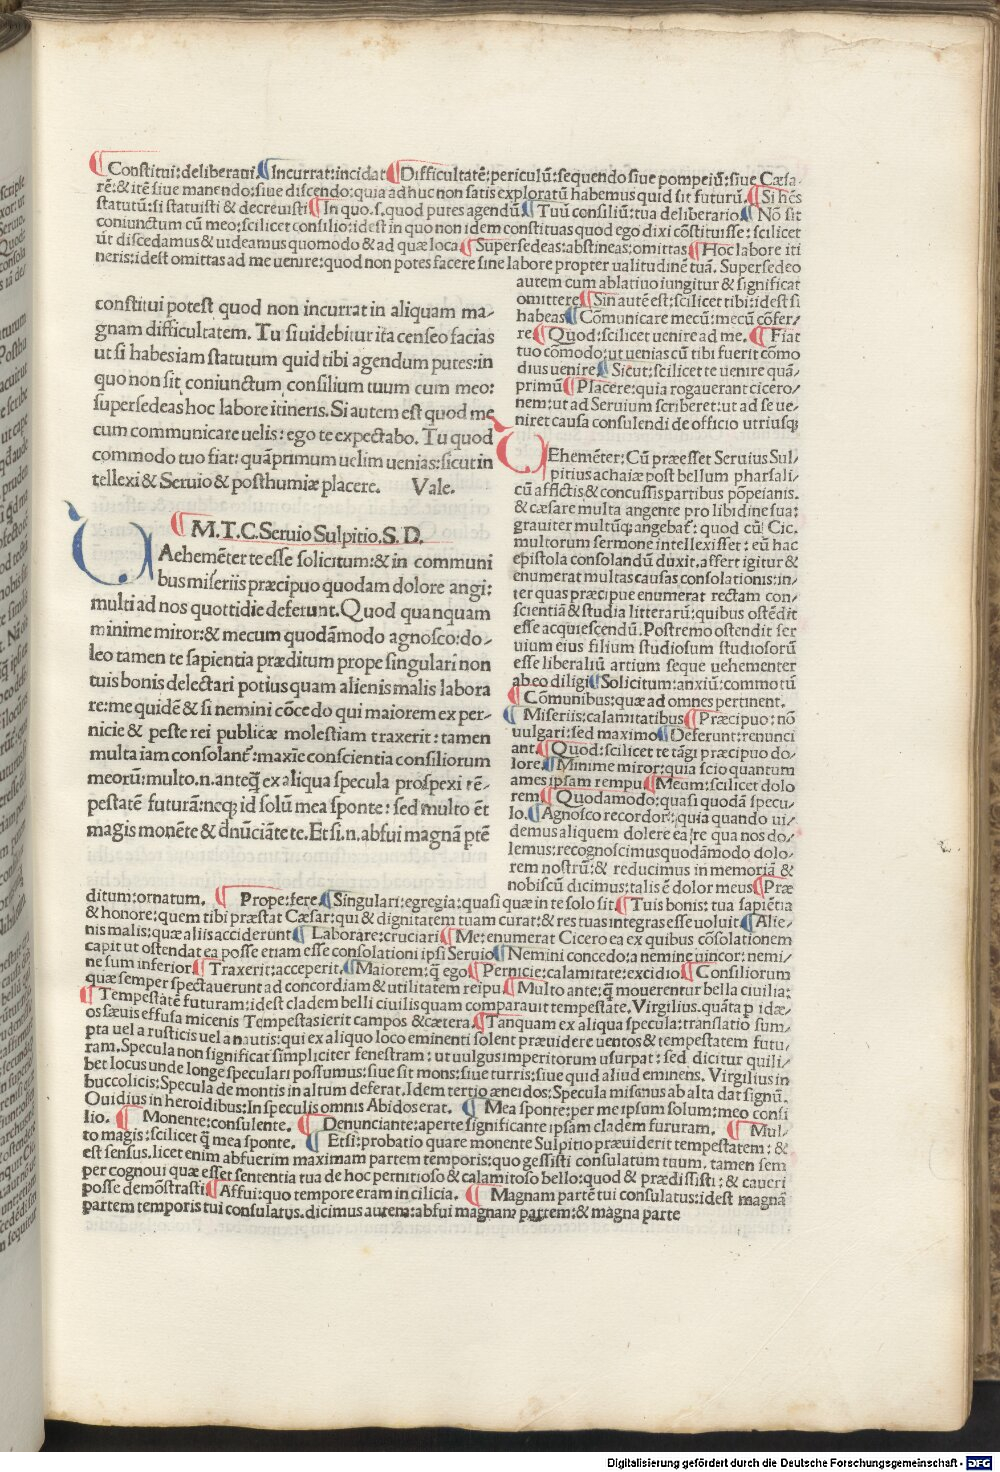 Constitui:deliberaui. Incurrat:incidat Difficultatē:periculū:sequendo siue pompeiū:siue Cæsa-
rē:& itē siue manendo:siue discendo:quia ad huc non satis exploratū habemus quid sit futurū. Si hēs
statutū:si statuisti & decreuisti In quo.s.quod putes agendū Tuū consiliū:tua deliberatio Nō sit
coniunctum cū meo:scilicet consilio:idest in quo non idem constituas quod ego dixi cōstituisse:scilicet
ut discedamus & uideamus quomodo & ad quæ loca Supersedeas:abstineas:omittas Hoc labore iti
neris:idest omittas ad me uenire:quod non potes facere sine labore propter ualitudinē tuā. Supersedeo
autem cum ablatiuo iungitur & significat
omittere Sin autē est:scilicet tibi:idest si
habeas Cōmunicare mecū:mecū cōfer/
re Quod:scilicet uenire ad me. Fiat
tuo cōmodo:ut uenias cū tibi fuerit cōmo
dius uenire Sicut:scilicet te uenire quā/
primū Placere:quia rogauerant cicero/
nem:ut ad Seruium scriberet:ut ad se ue/
niret causa consulendi de officio utriusq;
constitui potest quod non incurrat in aliquam ma-
gnam difficultatem. Tu si uidebitur ita censeo facias
ut si habes iam statutum quid tibi agendum putes:in
quo non sit coniunctum consilium tuum cum meo:
supersedeas hoc labore itineris. Si autem est quod me
cum communicare uelis:ego te expectabo. Tu quod
commodo tuo fiat:quāprimum uelim uenias:sicut in
tellexi & Seruio & posthumiæ placere. Vale.
M.T.C.Seruio Sulpitio.S.D.
Vaehemēter te esse solicitum:& in communi
bus miseriis præcipuo quodam dolore angi:
multi ad nos quottidie deferunt. Quod quanquam
minime miror:& mecum quodāmodo agnosco:do-
leo tamen te sapientia præditum prope singulari non
tuis bonis delectari potius quam alienis malis labora
re:me quidē & si nemini cōcedo qui maiorem ex per-
nicie & peste rei publicæ molestiam traxerit:tamen
multa iam consolant̄:maxīe conscientia consiliorum
meorū:multo.n.anteq̄ ex aliqua specula prospexi tē-
pestatē futurā:neq; id solū mea sponte:sed multo ēt
magis monēte & dnūciāte te. Et si.n.abfui magnā ptē
VEhemēter:Cū præesset Seruius Sul-
pitius achaiæ post bellum pharsali-
cū afflictis & concussis partibus pōpeianis.
& cæsare multa angente pro libidine sua:
grauiter multūq; angebat̄:quod cū Cic.
multorum sermone intellexisset:eū hac
epistola consolandū duxit.affert igitur &
enumerat multas causas consolationis:in/
ter quas præcipue enumerat rectam con/
scientiā & studia litterarū:quibus ostēdit
esse acquiescendū. Postremo ostendit ser
uium eius filium studiosum studiosorū
esse liberaliū artium seque uehementer
ab eo diligi Solicitum:anxiū:commotū
Cōmunibus:quæ ad omnes pertinent.
Miseriis:calamitatibus Præcipuo:nō
uulgari:sed maximo Deferunt:renunci
ant. Quod:scilicet te tāgi præcipuo do/
lore. Minime miror:quia scio quantum
ames ipsam rempu. Meum:scilicet dolo
rem Quodamodo:quasi quodā specu/
lo. Agnosco recordor:quia quando ui/
demus aliquem dolere ea re qua nos do/
lemus:recognoscimus quodāmodo dolo-
rem nostrū:& reducimus in memoriā &
nobiscū dicimus:talis ē dolor meus Præ
ditum:ornatum. Prope:fere. Singulari:egregia:quasi quæ in te solo sit Tuis bonis:tua sapiētia
& honore:quem tibi præstat Cæsar:qui & dignitatem tuam curat:& res tuas integras esse uoluit Alie-
nis malis:quæ aliis acciderunt Laborare:cruciari Me:enumerat Cicero ea ex quibus cōsolationem
capit ut ostendat ea posse etiam esse consolationi ipsi Seruio Nemini concedo:a nemine uincor:nemi/
ne sum inferior Traxerit:acceperit. Maiorem:q̄ ego Pernicie:calamitate:excidio Consiliorum
quæ semper spectauerunt ad concordiam & utilitatem reipu Multo ante:q̄ mouerentur bella ciuilia:
Tempestatē futuram:idest cladem belli ciuilis quam comparauit tempestate. Virgilius.quāta p idæ/
os sæuis effusa micenis Tempestas ierit campos & cætera Tanquam ex aliqua specula:translatio sum/
pta uel a rusticis uel a nautis:qui ex aliquo loco eminenti solent præuidere uentos & tempestatem futu/
ram. Specula non significat simpliciter fenestram:ut uulgus imperitorum usurpat:sed dicitur quili/
bet locus unde longe speculari possumus:siue sit mons:siue turris:siue quid aliud eminens. Virgilius in
buccolicis:Specula de montis in altum deferat. Idem tertio æneidos:Specula misenus ab alta dat signū.
Ouidius in heroidibus:In speculis omnis Abidos erat. Mea sponte:per me ipsum solum:meo consi
lio. Monente:consulente. Denunciante:aperte significante ipsam cladem fururam. Mul/
to magis:scilicet q̄ mea sponte. Etsi:probatio quare monente Sulpitio præuiderit tempestatem:&
est sensus.licet enim abfuerim maximam partem temporis:quo gessisti consulatum tuum.tamen sem
per cognoui quæ esset sententia tua de hoc pernitioso & calamitoso bello:quod & prædixisti:& caueri
posse demōstrasti Affui:quo tempore eram in cilicia. Magnam partē tui consulatus:idest magnā
partem temporis tui consulatus.dicimus autem:abfui magnam partem:& magna parte
Digitalisierung gefördert durch die Deutsche Forschungsgemeinschaft - DFG